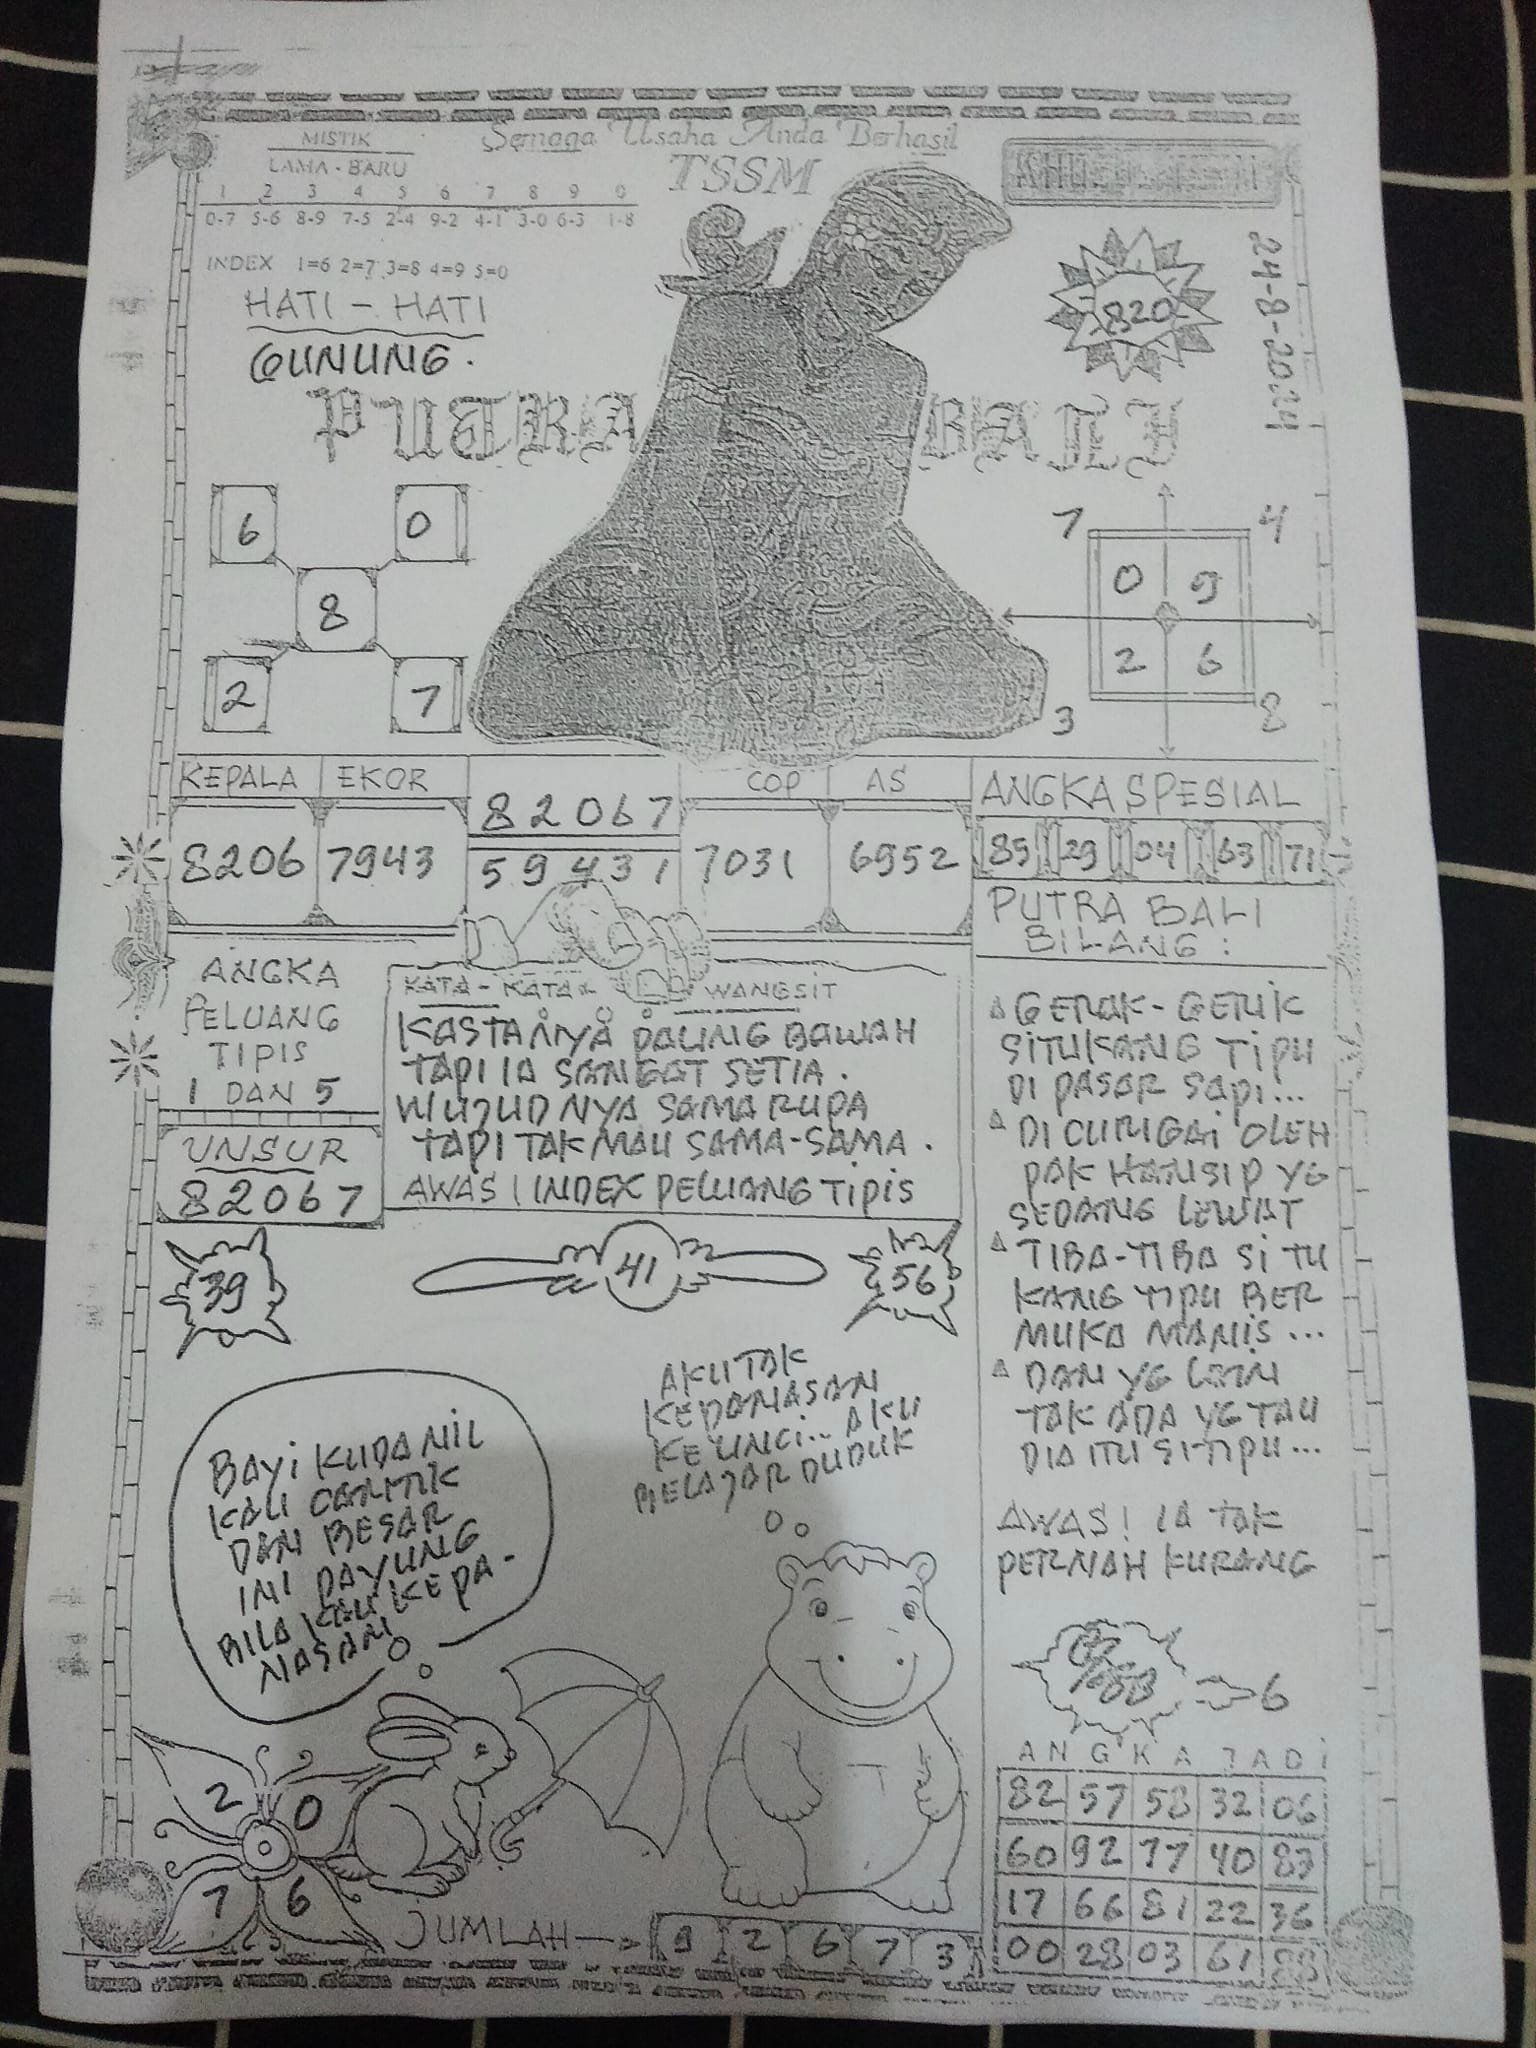 Semoga Usaha Anda Berhasil
TSSM
MISTIK
LAMA - BARU
1 2 3 4 5 6 7 8 9 0
0-7 5-6 8-9 7-5 2-4 9-2 4-1 3-0 6-3 1-8
INDEX 1=6 2=7 3=8 4=9 5=0
HATI - HATI
GUNUNG.
820
24-8-2024
PUTRA BALI
6 0
8
2 7
7 4
0 9
2 6
3 8
KEPALA EKOR
8206 7943
82067
59431
COP AS
7031 6952
ANGKA SPESIAL
85 29 04 63 71
PUTRA BALI
BILANG :
ANGKA
PELUANG
TIPIS
1 DAN 5
UNSUR
82067
KATA - KATA WANGSIT
KASTANYA PALING BAWAH
TAPI IA SANGAT SETIA.
WUJUDNYA SAMA RUPA
TAPI TAK MAU SAMA-SAMA.
AWAS! INDEX PELUANG TIPIS
GERAK-GERIK
SITUKANG TIPU
DI PASAR SAPI...
DI CURIGAI OLEH
PAK HANSIP YG
SEDANG LEWAT
TIBA-TIBA SI TU
KANG TIPU BER
MUKA MANIS ...
DAN YG LAIN
TAK ADA YG TAU
DIA ITU SI-TIPU...
AWAS! IA TAK
PERNAH KURANG
39
41
56
BAYI KUDANIL
KAU CANTIK
DAN BESAR
INI PAYUNG
BILA KAU KEPA-
NASAN
AKU TAK
KEPANASAN
KELINCI... AKU
BELAJAR DUDUK
6
2 0
7 6
JUMLAH
9 2 6 7 3
ANGKA JADI
82 57 58 32 06
60 92 77 40 87
17 66 81 22 36
00 28 03 61